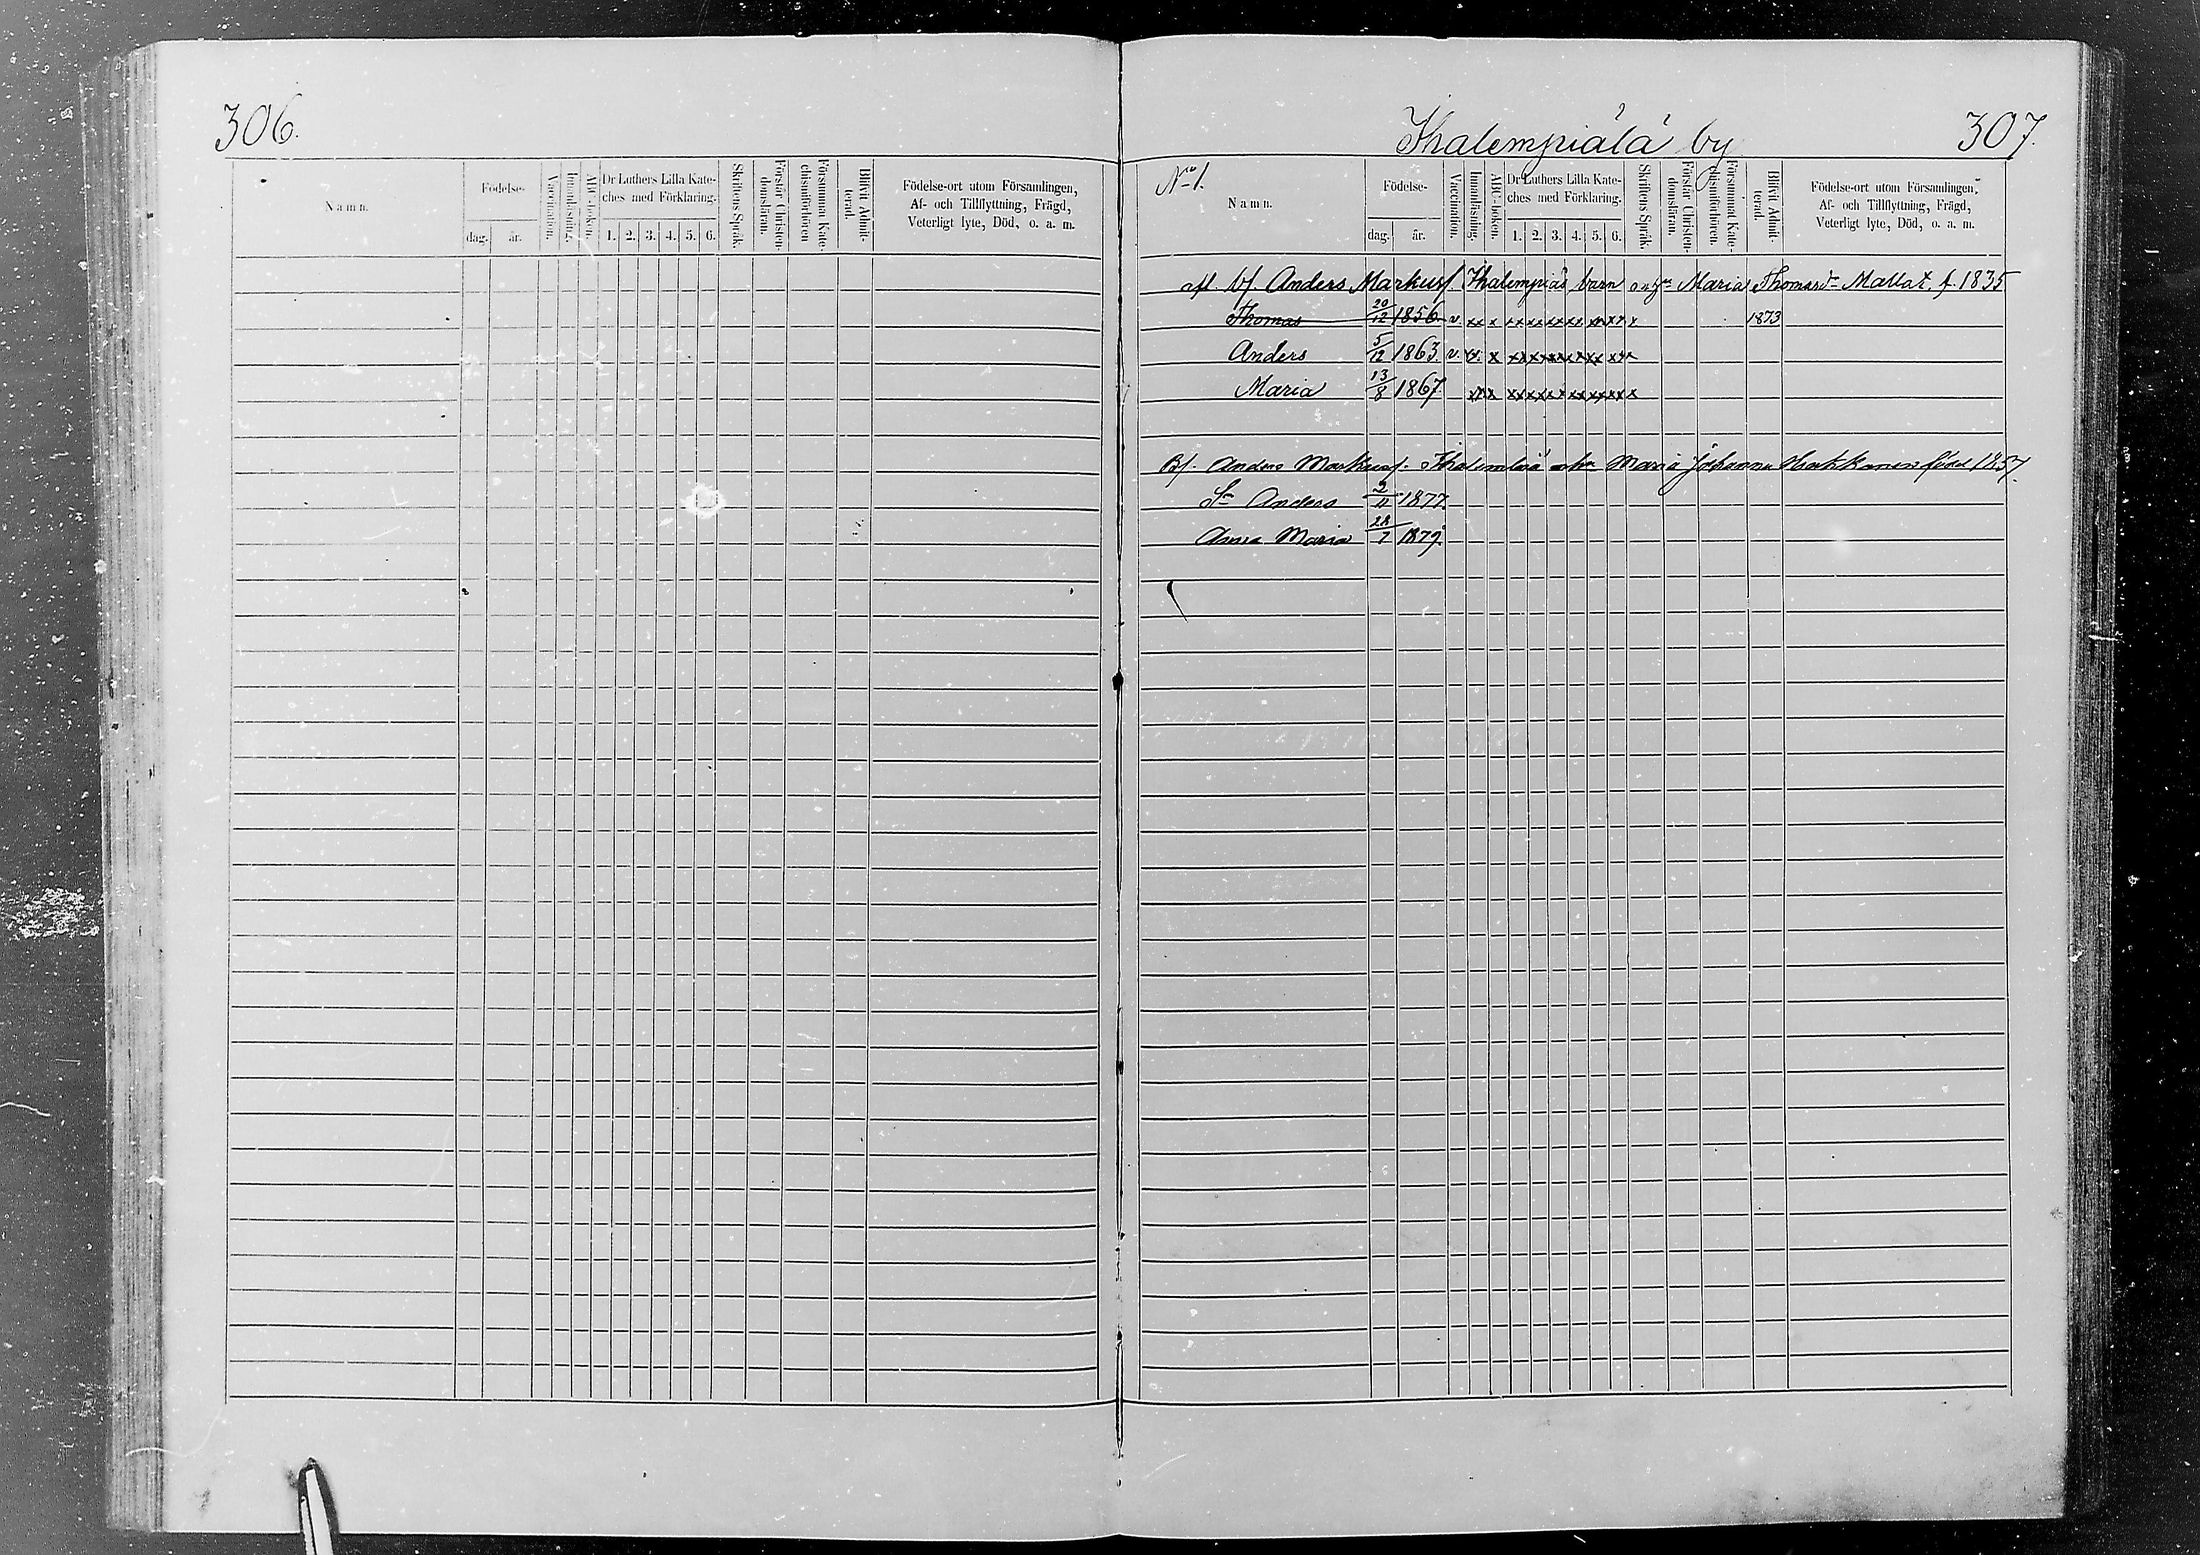 306.
Namn.
Födelse-
dag.
år.
Vaccination.
Innanläsning.
ABC-boken.
Dr Luthers Lilla Kate-
ches med Förklaring.
1. 2. 3. 4. 5. 6.
Skriftens Språk.
Förstår Christen-
domsläran.
Försummat Kate-
chismiförhören
Blifvit Admit-
terad.
Födelse-ort utom Församlingen,
Af- och Tillflyttning, Frägd,
Veterligt lyte, Död, o. a. m.
Ihalempiälä by
307.
No 1.
Namn.
Födelse-
dag.
år.
Vaccination.
Innanläsning.
ABC-boken.
Dr Luthers Lilla Kate-
ches med Förklaring.
1. 2. 3. 4. 5. 6.
Skriftens Språk.
Förstår Christen-
domsläran.
Försummat Kate-
chismiförhören.
Blifvit Admit-
terad.
Födelse-ort utom Församlingen,
Af- och Tillflyttning, Frägd,
Veterligt lyte, Död, o. a. m.
afl. bf. Anders Markusf. Ihalempiäs barn o h Maria Thomasdr Mallat f. 1835
Thomas 20/12 1856 v. xx x xx xx xx xx xx xx x 1873
Anders 5/12 1863. v. x x xx xx xx xx xx xx x
Maria 13/8 1867 xx x xx xx xx xx xx xx x
Bf. Anders Markusf. Maria född 1857.
Sn Anders 2/11 1877.
Anna Maria 28/7 1879.